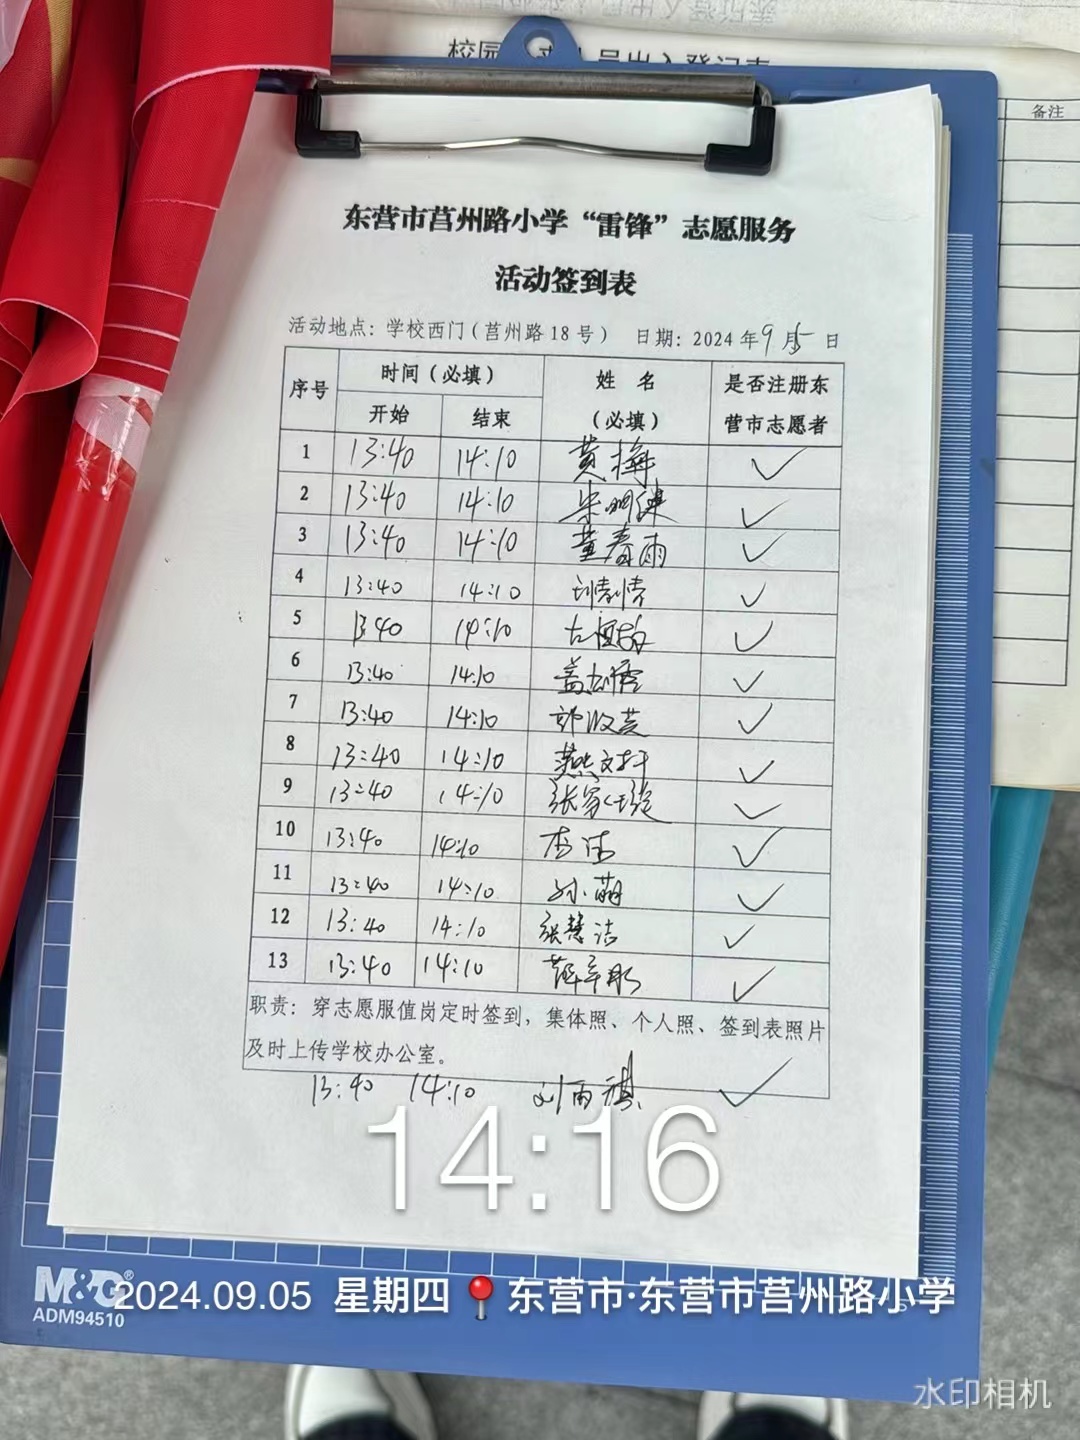 备注
东营市莒州路小学“雷锋”志愿服务
活动签到表
活动地点：学校西门（莒州路18号） 日期：2024年9月5日
序号 时间（必填） 姓 名 （必填） 是否注册东营市志愿者
开始 结束
1 13:40 14:10 黄梅 ✓
2 13:40 14:10 ✓
3 13:40 14:10 董春雨 ✓
4 13:40 14:10 ✓
5 13:40 14:10 ✓
6 13:40 14:10 ✓
7 13:40 14:10 ✓
8 13:40 14:10 燕文轩 ✓
9 13:40 14:10 ✓
10 13:40 14:10 李洁 ✓
11 13:40 14:10 孙萌 ✓
12 13:40 14:10 张慧洁 ✓
13 13:40 14:10 ✓
职责：穿志愿服值岗定时签到，集体照、个人照、签到表照片
及时上传学校办公室。
13:40 14:10 刘雨祺 ✓
14:16
M&G®
ADM94510
2024.09.05 星期四 东营市·东营市莒州路小学
水印相机